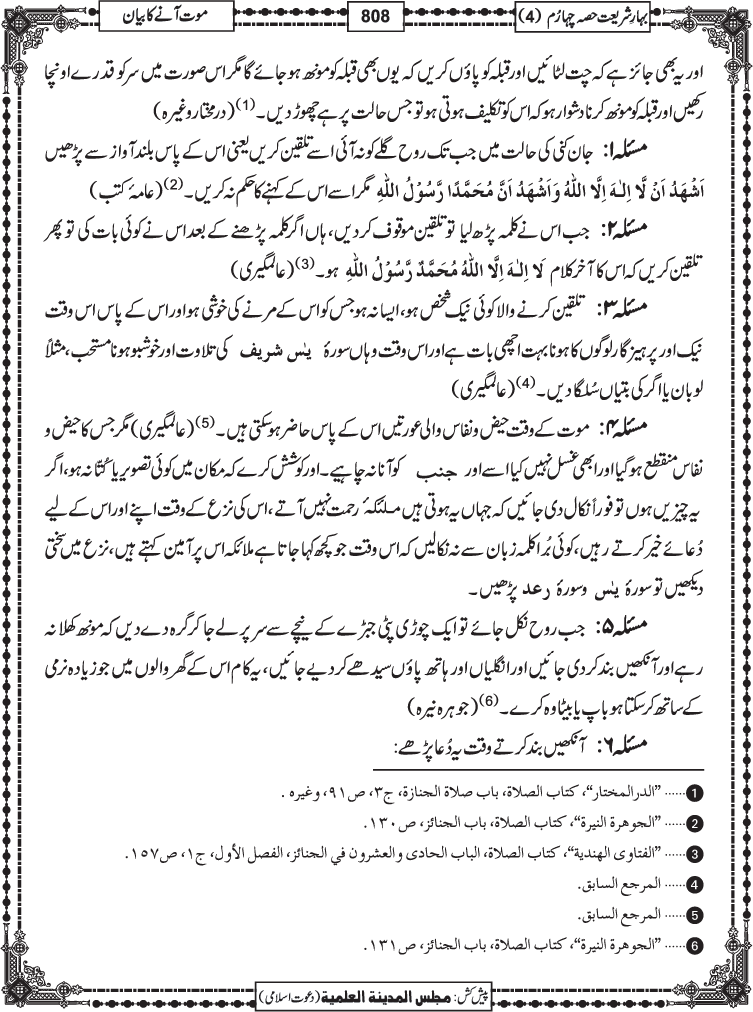 بہارِ شریعت حصہ چہارُم (4)
808
موت آنے کا بیان
اور یہ بھی جائز ہے کہ چت لٹائیں اور قبلہ کو پاؤں کریں کہ یوں بھی قبلہ کو مونھ ہو جائے گا مگر اس صورت میں سر کو قدرے اونچا
رکھیں اور قبلہ کو مونھ کرنا دشوار ہو کہ اس کو تکلیف ہوتی ہو تو جس حالت پر ہے چھوڑ دیں۔(1) (درمختار وغیرہ)
مسئلہ ۱: جان کنی کی حالت میں جب تک روح گلے کو نہ آئی اسے تلقین کریں یعنی اس کے پاس بلند آواز سے پڑھیں
اَشْھَدُ اَنْ لَّا اِلٰـہَ اِلَّا اللہُ وَاَشْھَدُ اَنَّ مُحَمَّدًا رَّسُوْلُ اللہِ مگر اسے اس کے کہنے کا حکم نہ کریں۔(2) (عامۂ کتب)
مسئلہ ۲: جب اس نے کلمہ پڑھ لیا تو تلقین موقوف کر دیں، ہاں اگر کلمہ پڑھنے کے بعد اس نے کوئی بات کی تو پھر
تلقین کریں کہ اس کا آخر کلام لَا اِلٰـہَ اِلَّا اللہُ مُحَمَّدٌ رَّسُوْلُ اللہِ ہو۔(3) (عالمگیری)
مسئلہ ۳: تلقین کرنے والا کوئی نیک شخص ہو، ایسا نہ ہو جس کو اس کے مرنے کی خوشی ہو اور اس کے پاس اس وقت
نیک اور پرہیزگار لوگوں کا ہونا بہت اچھی بات ہے اور اس وقت وہاں سورۂ یٰسٓ شریف کی تلاوت اور خوشبو ہونا مستحب، مثلاً
لوبان یا اگر کی بتیاں سُلگا دیں۔(4) (عالمگیری)
مسئلہ ۴: موت کے وقت حیض و نفاس والی عورتیں اس کے پاس حاضر ہو سکتی ہیں۔(5) (عالمگیری) مگر جس کا حیض و
نفاس منقطع ہو گیا اور ابھی غسل نہیں کیا اسے اور جنب کو آنا نہ چاہیے۔ اور کوشش کرے کہ مکان میں کوئی تصویر یا کُتّا نہ ہو، اگر
یہ چیزیں ہوں تو فوراً نکال دی جائیں کہ جہاں یہ ہوتی ہیں ملٰئکۂ رحمت نہیں آتے، اس کی نزع کے وقت اپنے اور اس کے لیے
دُعائے خیر کرتے رہیں، کوئی بُرا کلمہ زبان سے نہ نکالیں کہ اس وقت جو کچھ کہا جاتا ہے ملائکہ اس پر آمین کہتے ہیں، نزع میں سختی
دیکھیں تو سورۂ یٰسٓ و سورۂ رعد پڑھیں۔
مسئلہ ۵: جب روح نکل جائے تو ایک چوڑی پٹی جبڑے کے نیچے سے سر پر لے جا کر گرہ دے دیں کہ مونھ کھلا نہ
رہے اور آنکھیں بند کر دی جائیں اور انگلیاں اور ہاتھ پاؤں سیدھے کر دیے جائیں، یہ کام اس کے گھر والوں میں جو زیادہ نرمی
کے ساتھ کر سکتا ہو باپ یا بیٹا وہ کرے۔(6) (جوہرہ نیرہ)
مسئلہ ۶: آنکھیں بند کرتے وقت یہ دُعا پڑھے:
1 ...... "الدرالمختار"، کتاب الصلاۃ، باب صلاۃ الجنازۃ، ج۳، ص۹۱، وغیرہ .
2 ...... "الجوھرۃ النیرۃ"، کتاب الصلاۃ، باب الجنائز، ص۱۳۰.
3 ...... "الفتاوی الھندیۃ"، کتاب الصلاۃ، الباب الحادی والعشرون في الجنائز، الفصل الأول، ج۱، ص۱۵۷.
4 ...... المرجع السابق.
5 ...... المرجع السابق.
6 ...... "الجوھرۃ النیرۃ"، کتاب الصلاۃ، باب الجنائز، ص۱۳۱.
پیش کش: مجلس المدینۃ العلمیۃ (دعوتِ اسلامی)